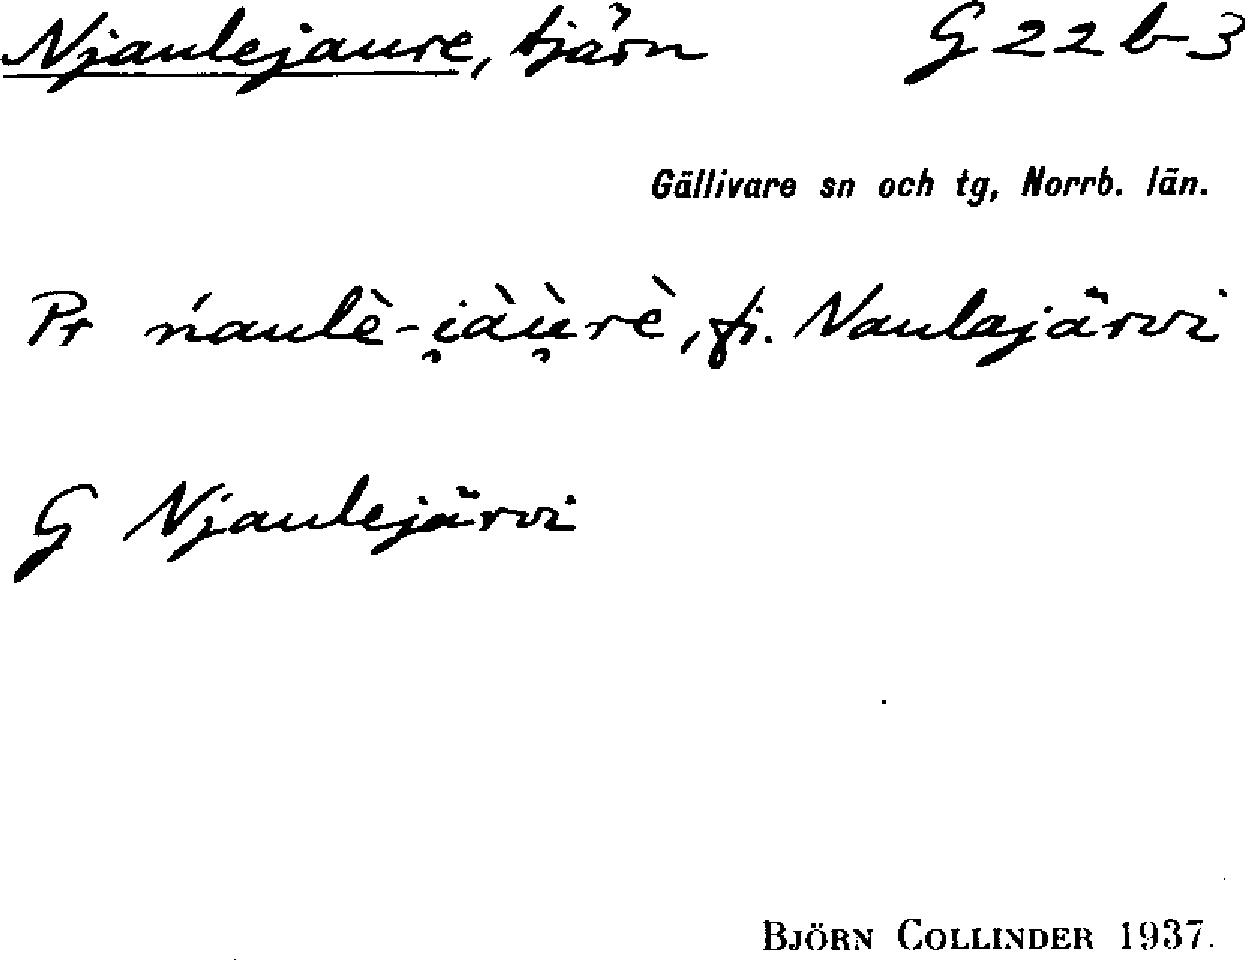 Njaulejaure, tjärn G 22 b 3
Gällivare sn och tg, Norrb. län.
Pr ńaulè-i̯àù̯rè, fi. Naulajärvi
G Njaulejärvi
BJÖRN COLLINDER 1937.